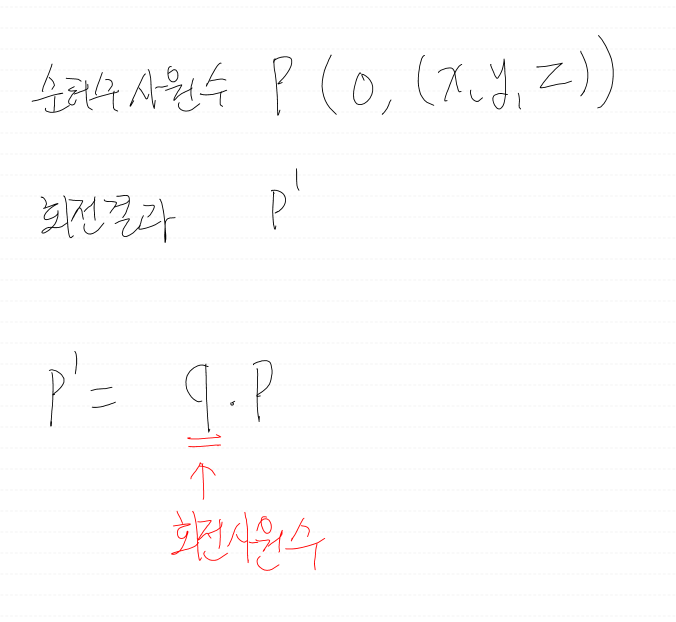 순허수 사원수 P (0, (x, y, z))
회전결과 P'
P' = q . P
↑
회전사원수